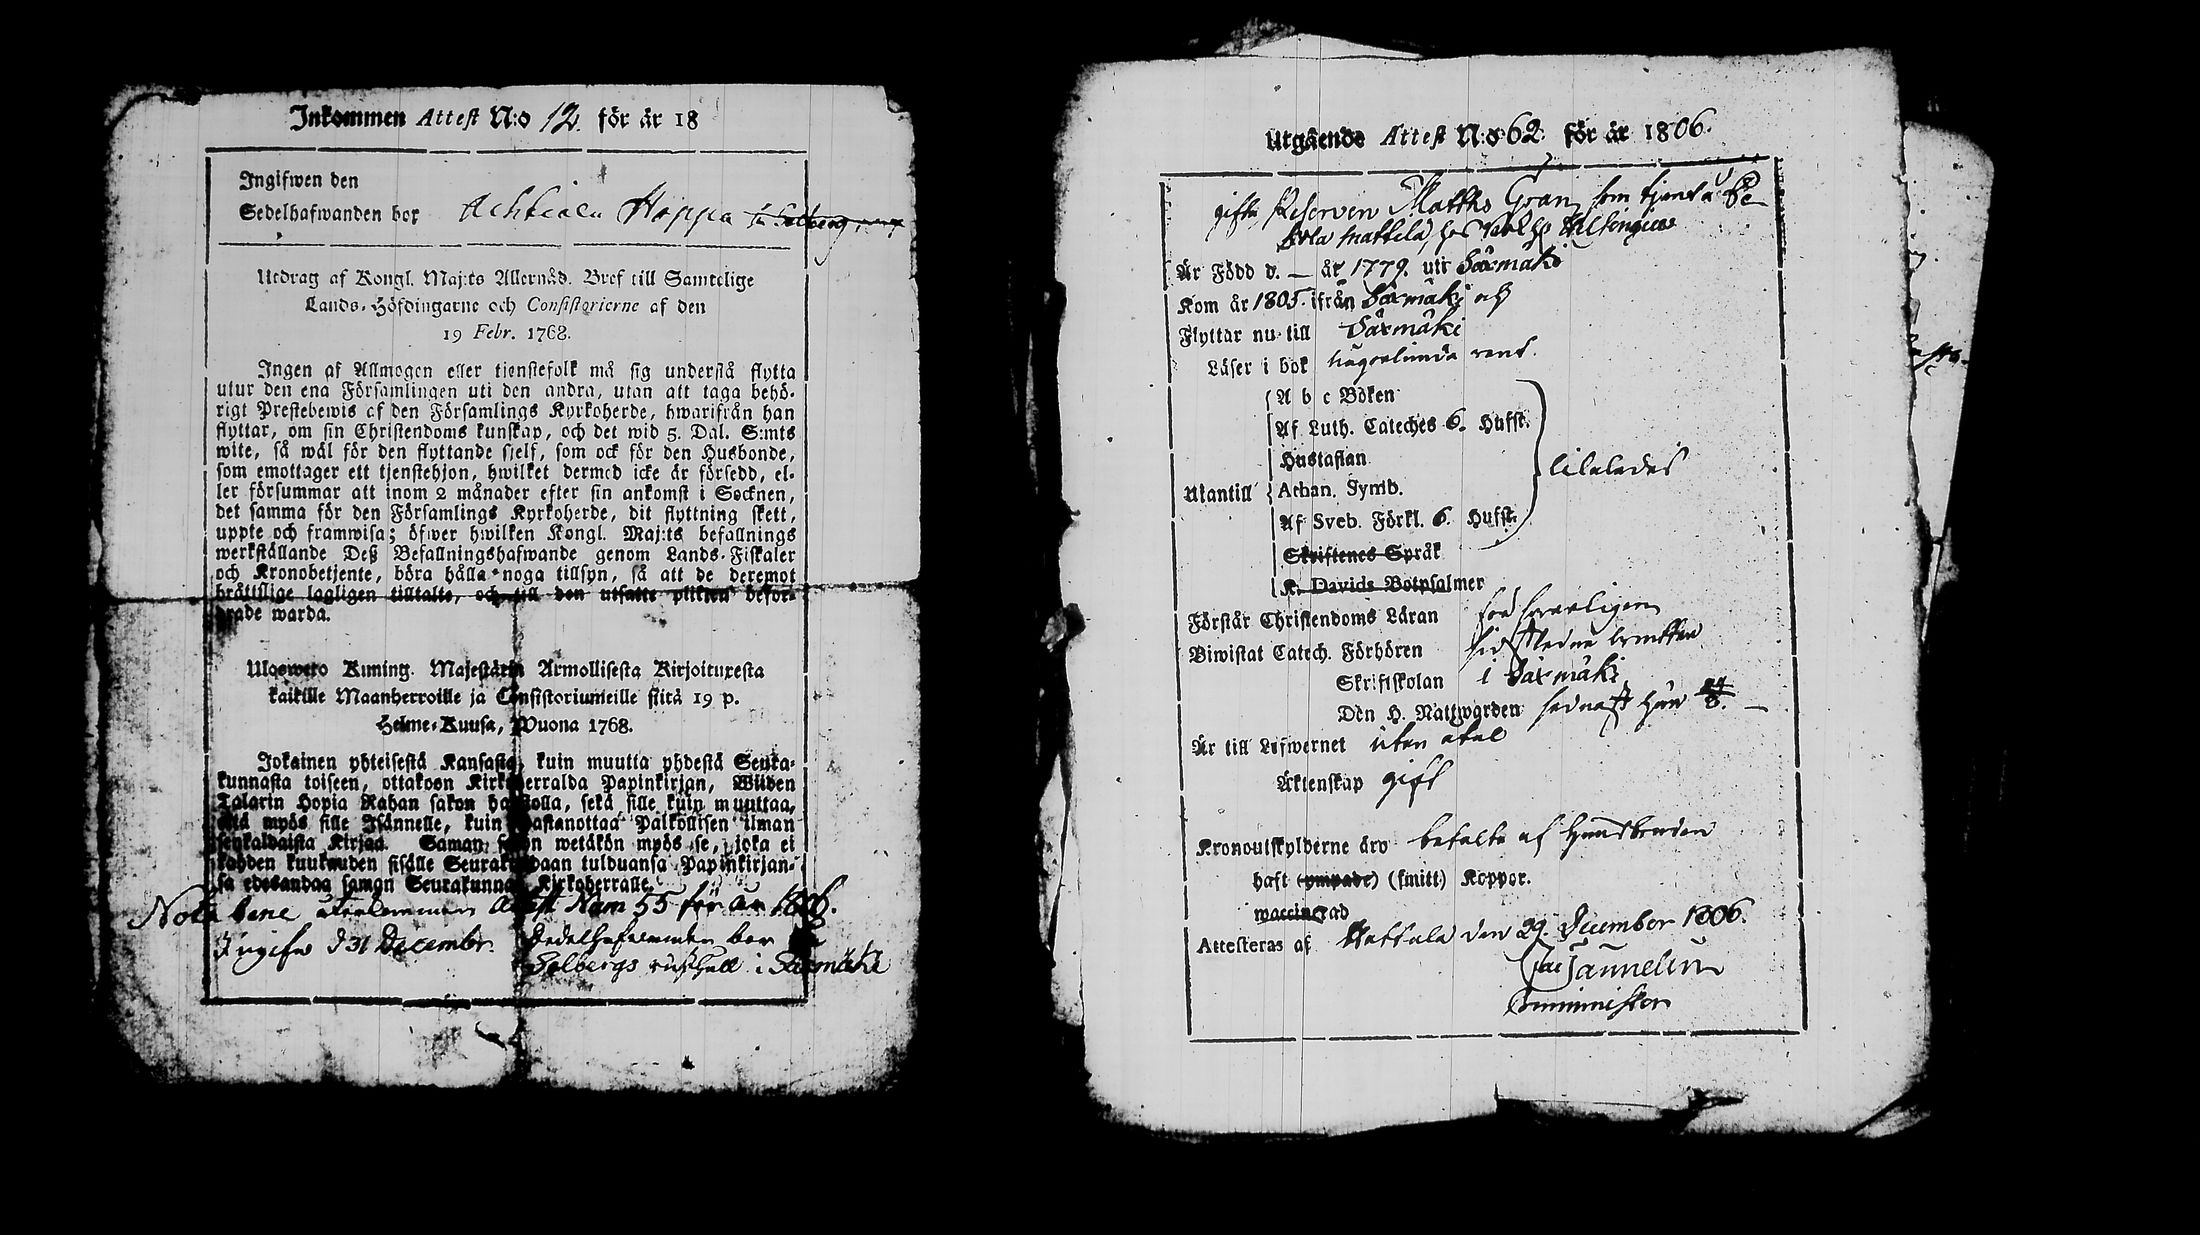 Inkommen Attest N:o 12. för år 18
Ingifwen den
Sedelhafwanden bor Hoppa
Utdrag af Kongl. Maj:ts Allernåd. Bref till Samtelige
Lands-Höfdingarne och Consistorierne af den
19 Febr. 1768.
Ingen af Allmogen eller tienstefolk må sig understå flytta
utur den ena Församlingen uti den andra, utan att taga behö-
rigt Prestebewis af den Församlings Kyrkoherde, hwarifrån han
flyttar, om sin Christendoms kunskap, och det wid 5. Dal. S:mts
wite, så wäl för den flyttande sjelf, som ock för den Husbonde,
som emottager ett tjenstehjon, hwilket dermed icke är försedd, el-
ler försummar att inom 2 månader efter sin ankomst i Socknen,
det samma för den Församlings Kyrkoherde, dit flyttning skett,
uppte och framwisa; öfwer hwilken Kongl. Maj:ts befallnings
werkställande Deß Befallningshafwande genom Lands-Fiskaler
och Kronobetjente, böra hålla noga tillsyn, så att de deremot
bråttslige lagligen tilltalte, och till den utsatte plikten befor-
drade warda.
Ulosweto Kuning. Majestätin Armollisesta Kirjoituxesta
kaikille Maanherroille ja Consistoriumeille siitä 19 p.
Helme-Kuusa, Wuona 1768.
Jokainen yhteisestä Kansasta, kuin muutta yhdestä Seura-
kunnasta toiseen, ottakoon Kirkkoherralda Papinkirjan, Wiiden
Talarin Hopia Rahan sakon haastolla, sekä sille kuin muuttaa,
että myös sille Isännelle, kuin wastanottaa Palkollisen ilman
senkaldaista Kirjaa. Saman sakon wetäkön myös se, joka ei
kahden kuukauden sisälle Seurakundaan tulduansa Papinkirjan-
sa edesandaa saman Seurakunnan Kirkoherralle.
Nota bene återkommen Attest Num 55 för år 1806.
Ingifw d 31 Decembr. Sedelhafwanden bor
Solbergs rusthåll i Säxmäki
Utgående Attest N:o 62. för år 1806.
gifte Reserven Matths Gran, som tjent å Pe-
kola
Är Född d. — år 1779. uti Säxmäki
Kom år 1805. ifrån Säxmäki och
Flyttar nu till Säxmäki
Läser i bok någorlunda rent.
A b c Boken
Af Luth. Cateches 6. Hufst.
Hustaflan
Utantill Athan. Symb.
Af Sveb. Förkl. 6. Hufst.
likaledes
Skriftenes Språk
K. Davids Botpsalmer
Förstår Christendoms Läran försvarligen
Biwistat Catech. Förhören
Skriftskolan i Säxmäki
Den H. Nattwarden sednast här
Är till Lefwernet utan åtal
Äktenskap gift
Kronoutskylderne äro betalte af Husbonden
haft (ympade) (smitt) Koppor.
waccinerad
Attesteras af Hattula den 29. December 1806.
Jac Jaunelin
Comminister